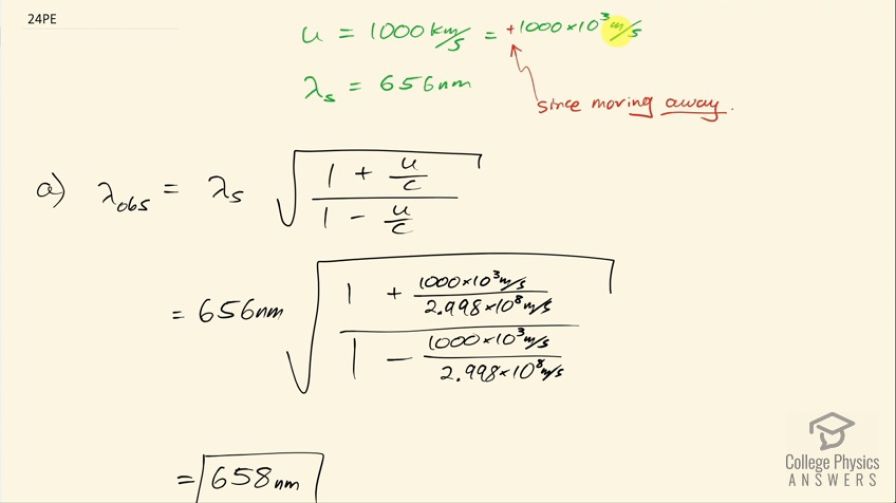 24PE
u = 1000 km/s = +1000×10³ m/s
λₛ = 656nm
since moving away.
a) λobs = λₛ √((1 + u/c)/(1 - u/c))
= 656nm √((1 + (1000×10³ m/s)/(2.998×10⁸ m/s))/(1 - (1000×10³ m/s)/(2.998×10⁸ m/s)))
= 658nm
College Physics
ANSWERS